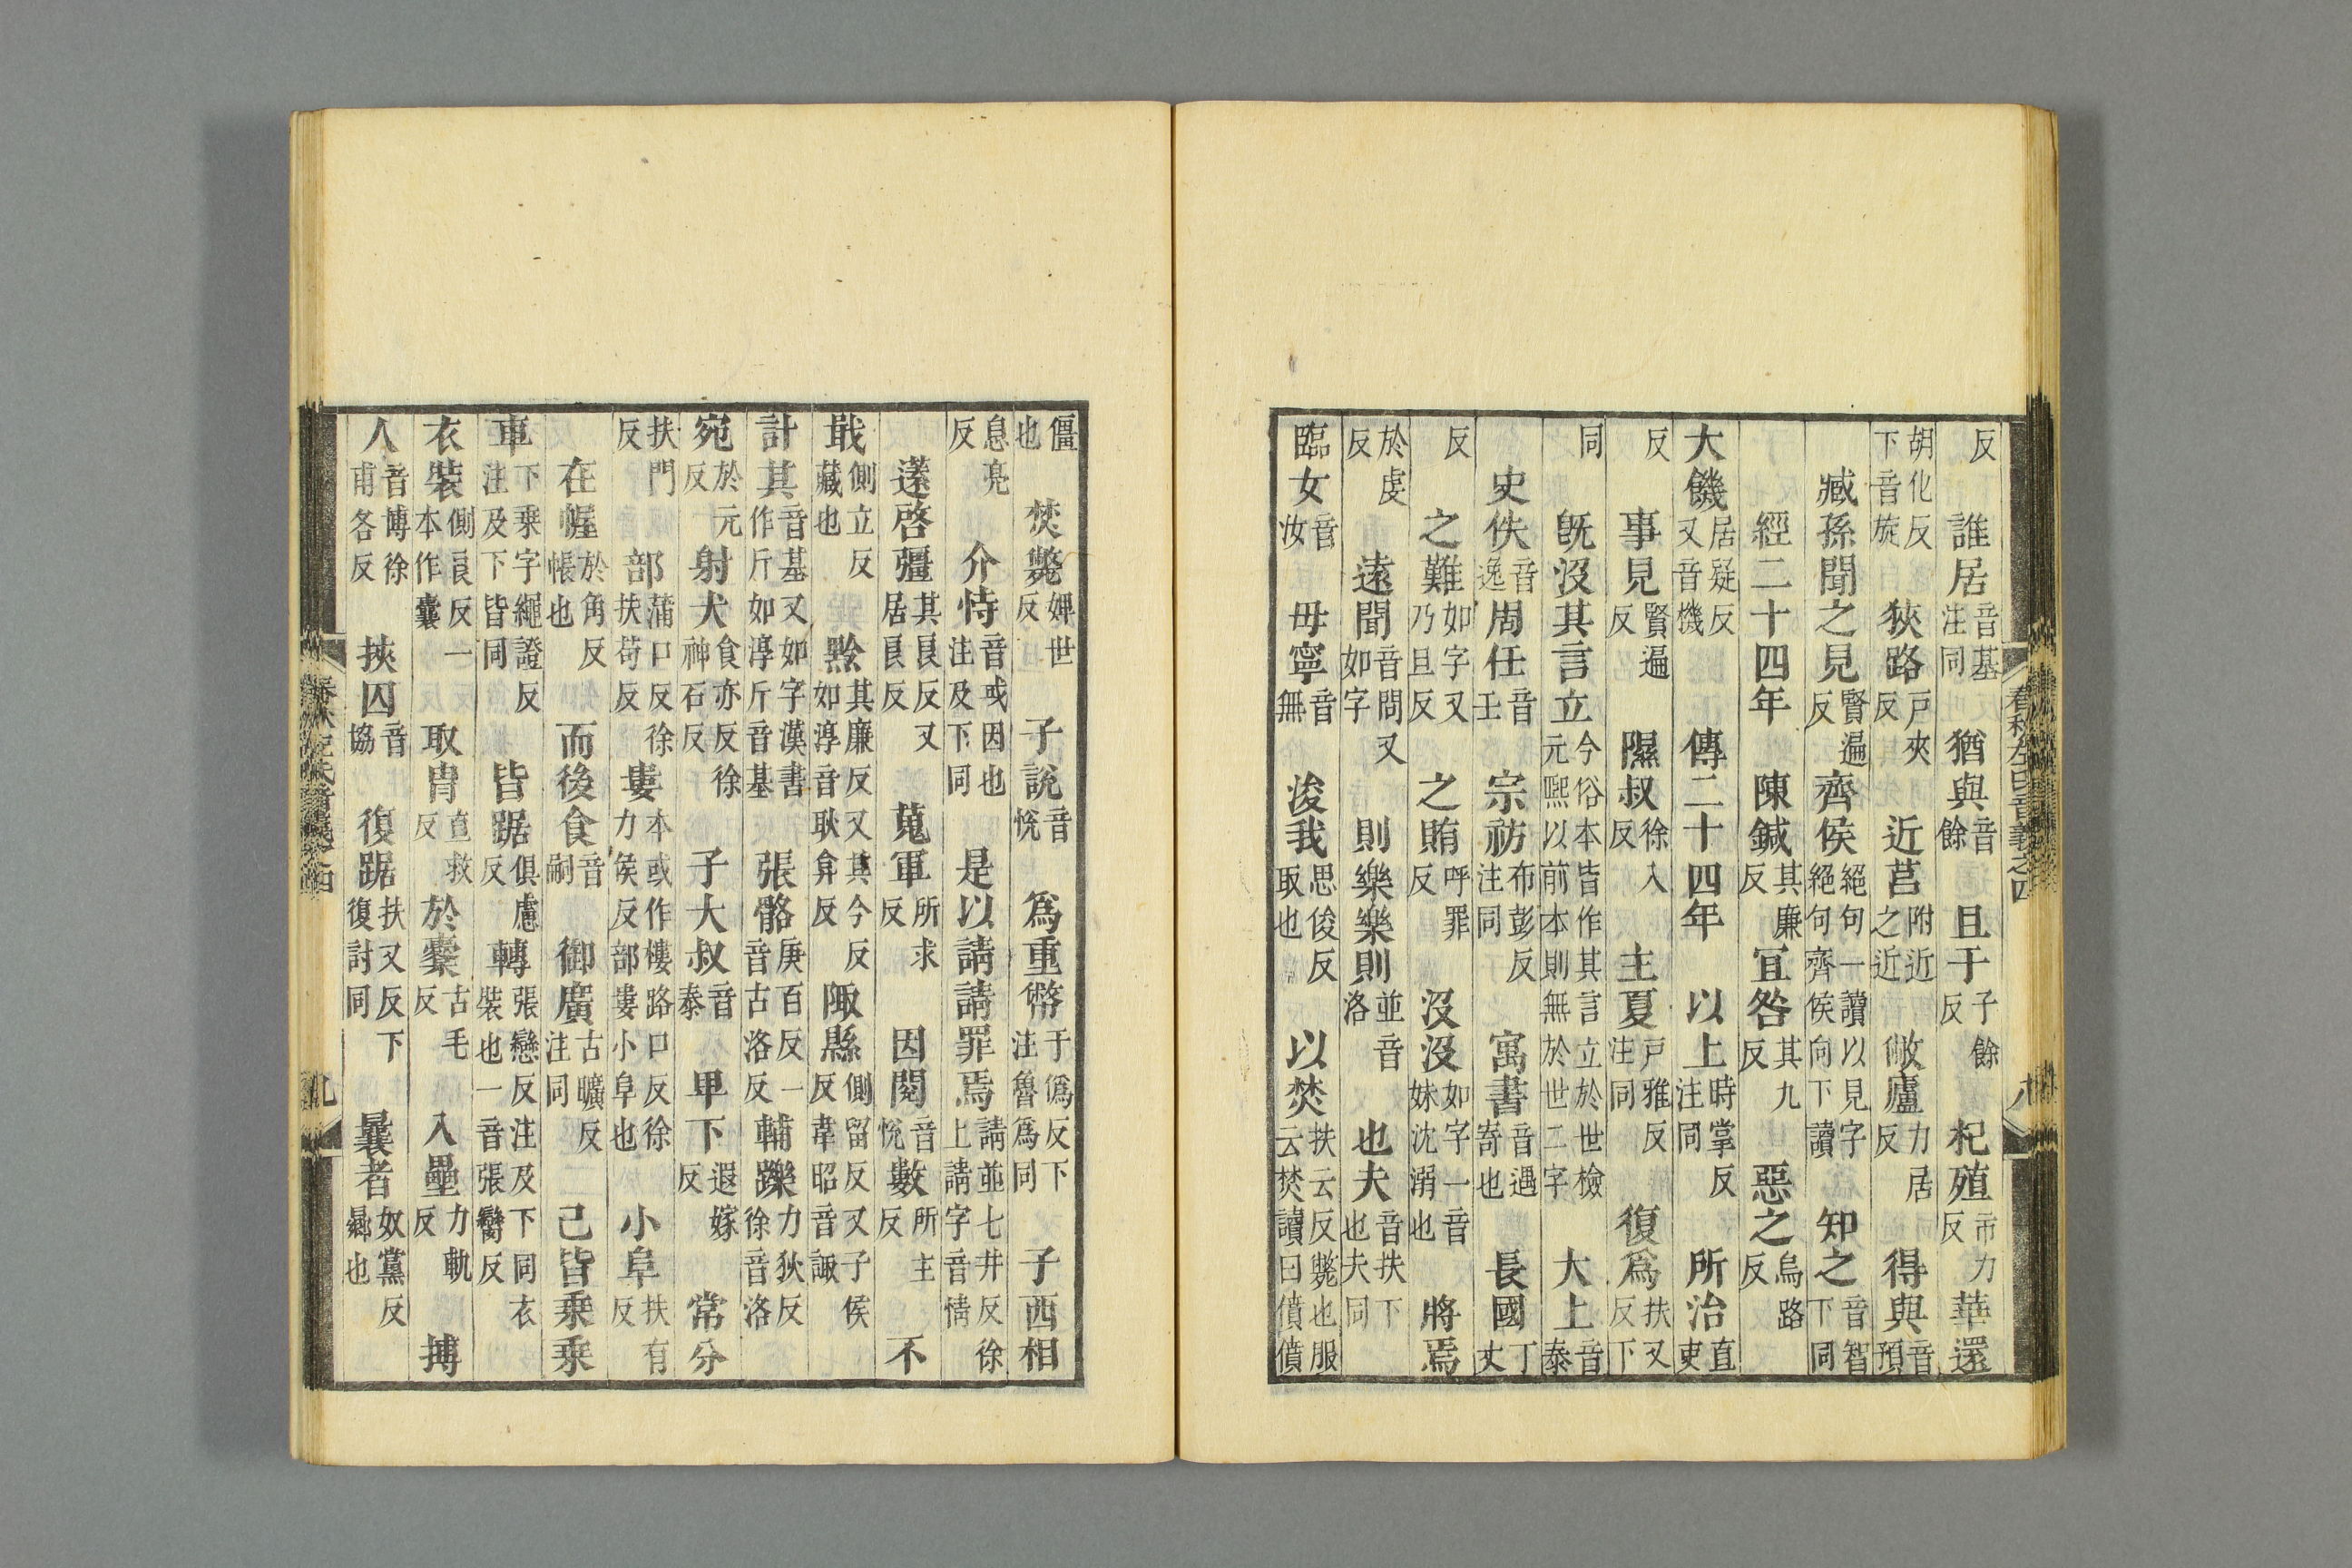 反　誰居音基注同　猶與音餘　且于子餘反　杞殖市力反華還
胡化反下音旋　狹路戶夾反　近莒附近之近　敝廬力居反　得與音預
臧孫聞之見賢遍反　齊侯絕句一讀以見字絕句齊侯向下讀　知之音智下同
經二十四年　陳鍼其廉反　宜咎其九反　惡之烏路反
大饑居疑反又音機　傳二十四年　以上時掌反注同　所治直吏
反　事見賢遍反　隰叔徐入反　主夏戶雅反注同　復爲扶又反下
同　旣沒其言立今俗本皆作其言立於世檢元熙以前本則無於世二字　大上音泰
史佚音逸　周任音壬　宗祊布彭反注同　寓書音遇寄也　長國丁丈
反　之難如字又乃旦反　之賄呼罪反　沒沒如字一音妹沈溺也　將焉
於虔反　遠聞音問又如字　則樂樂則並音洛　也夫音扶下也夫同
臨女音汝　毋寧音無　浚我思俊反取也　以焚扶云反斃也服云焚讀曰僨僨
僵也　焚斃婢世反　子說音悅　爲重幣于僞反下注魯爲同　子西相
息亮反　介恃音或因也注及下同　是以請請罪焉請並七井反徐上請字音情
薳啓彊其良反又居良反　蒐軍所求反　因閱音悅　數所主反　不
戢側立反藏也　黔其廉反又其今反如淳音耿弇反　陬縣側留反又子侯反韋昭音諏
計其音基又如字漢書作斤如淳斤音基　張骼庚百反一音古洛反　輔躒力狄反徐音洛
宛於元反　射犬食亦反徐神石反　子大叔音泰　卑下遐嫁反　常分
扶門反　部蒲口反徐扶苟反　婁本或作樓路口反徐力侯反部婁小阜也　小阜扶有反
在幄於角反帳也　而後食音嗣　御廣古曠反注同　己皆乘乘
車下乘字繩證反注及下皆同　皆踞俱慮反　轉張戀反注及下同衣裝也一音張臠反
衣裝側良反一本作囊　取胄直救反　於櫜古毛反　入壘力軌反　搏
人音博徐甫各反　挾囚音協　復踞扶又反下復討同　曩者奴黨反曏也
春秋左氏音義之四
春秋左氏音義之四　九